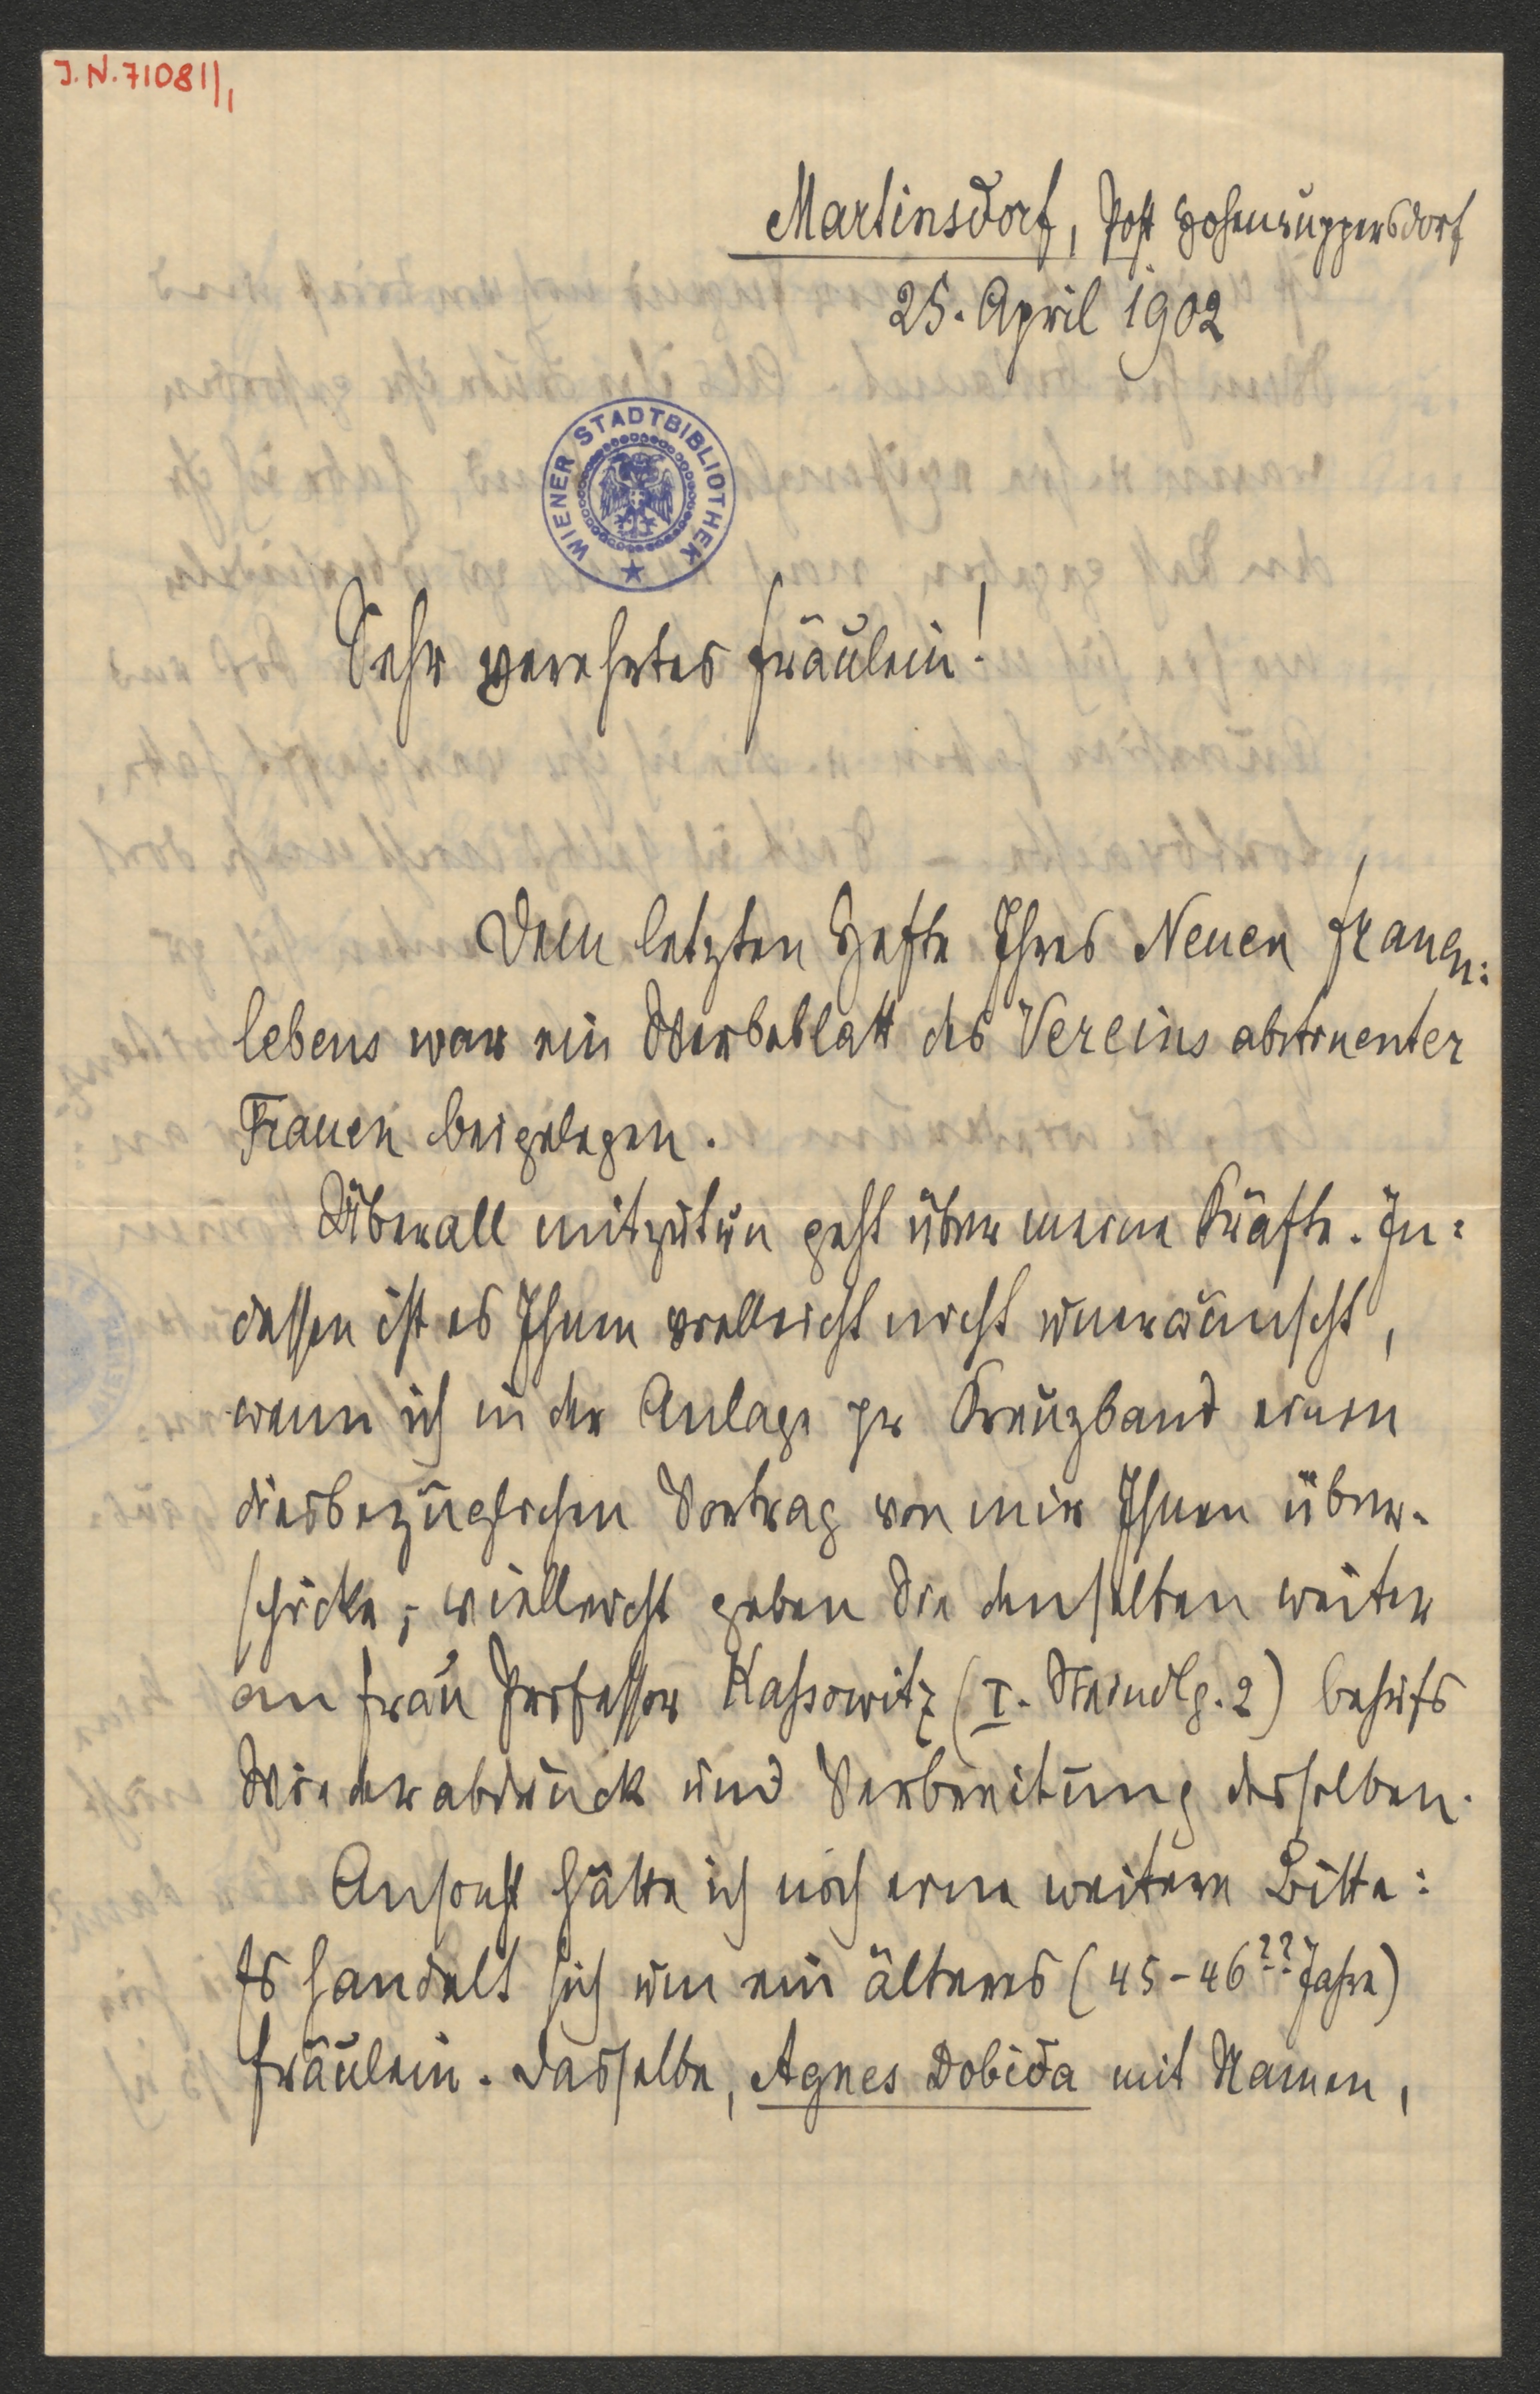 J.N. 71081/1
Martinsdorf, Post Hohenruppersdorf
25. April 1902
WIENER STADTBIBLIOTHEK
Sehr verehrtes Fräulein!
Dem letzten Hefte Ihres Neuen Frauen:
lebens war ein Werbeblatt des Vereins abstinenter
Frauen beigelegen.
Überall mitzutun geht über meine Kräfte. In:
dessen ist es Ihnen vielleicht nicht unerwünscht,
wenn ich in der Anlage pr Kreuzband einen
diesbezüglichen Vortrag von mir Ihnen über-
schicke; vielleicht geben Sie denselben weiter
an Frau Professor Kassowitz (I. Steindlg. 2) behufs
Wiederabdruck und Verbreitung desselben.
Ansonst hätte ich noch eine weitere Bitte:
Es handelt sich um ein älteres (45-46?? Jahre)
Fräulein. Dasselbe, Agnes Dobida mit Namen,